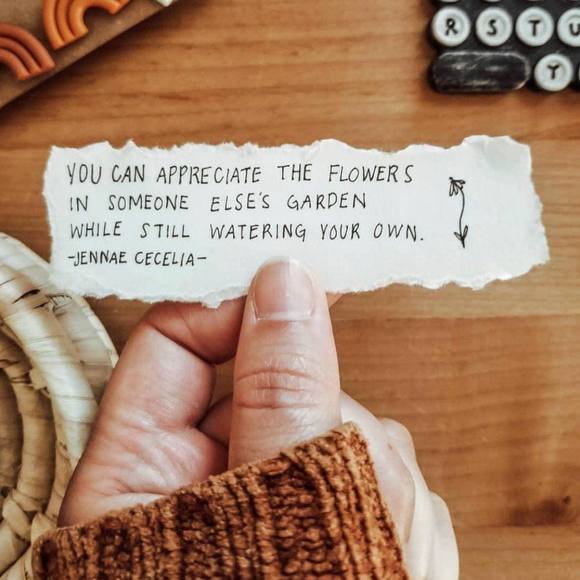 R S T U
Y
YOU CAN APPRECIATE THE FLOWERS
IN SOMEONE ELSE'S GARDEN
WHILE STILL WATERING YOUR OWN.
-JENNAE CECELIA-